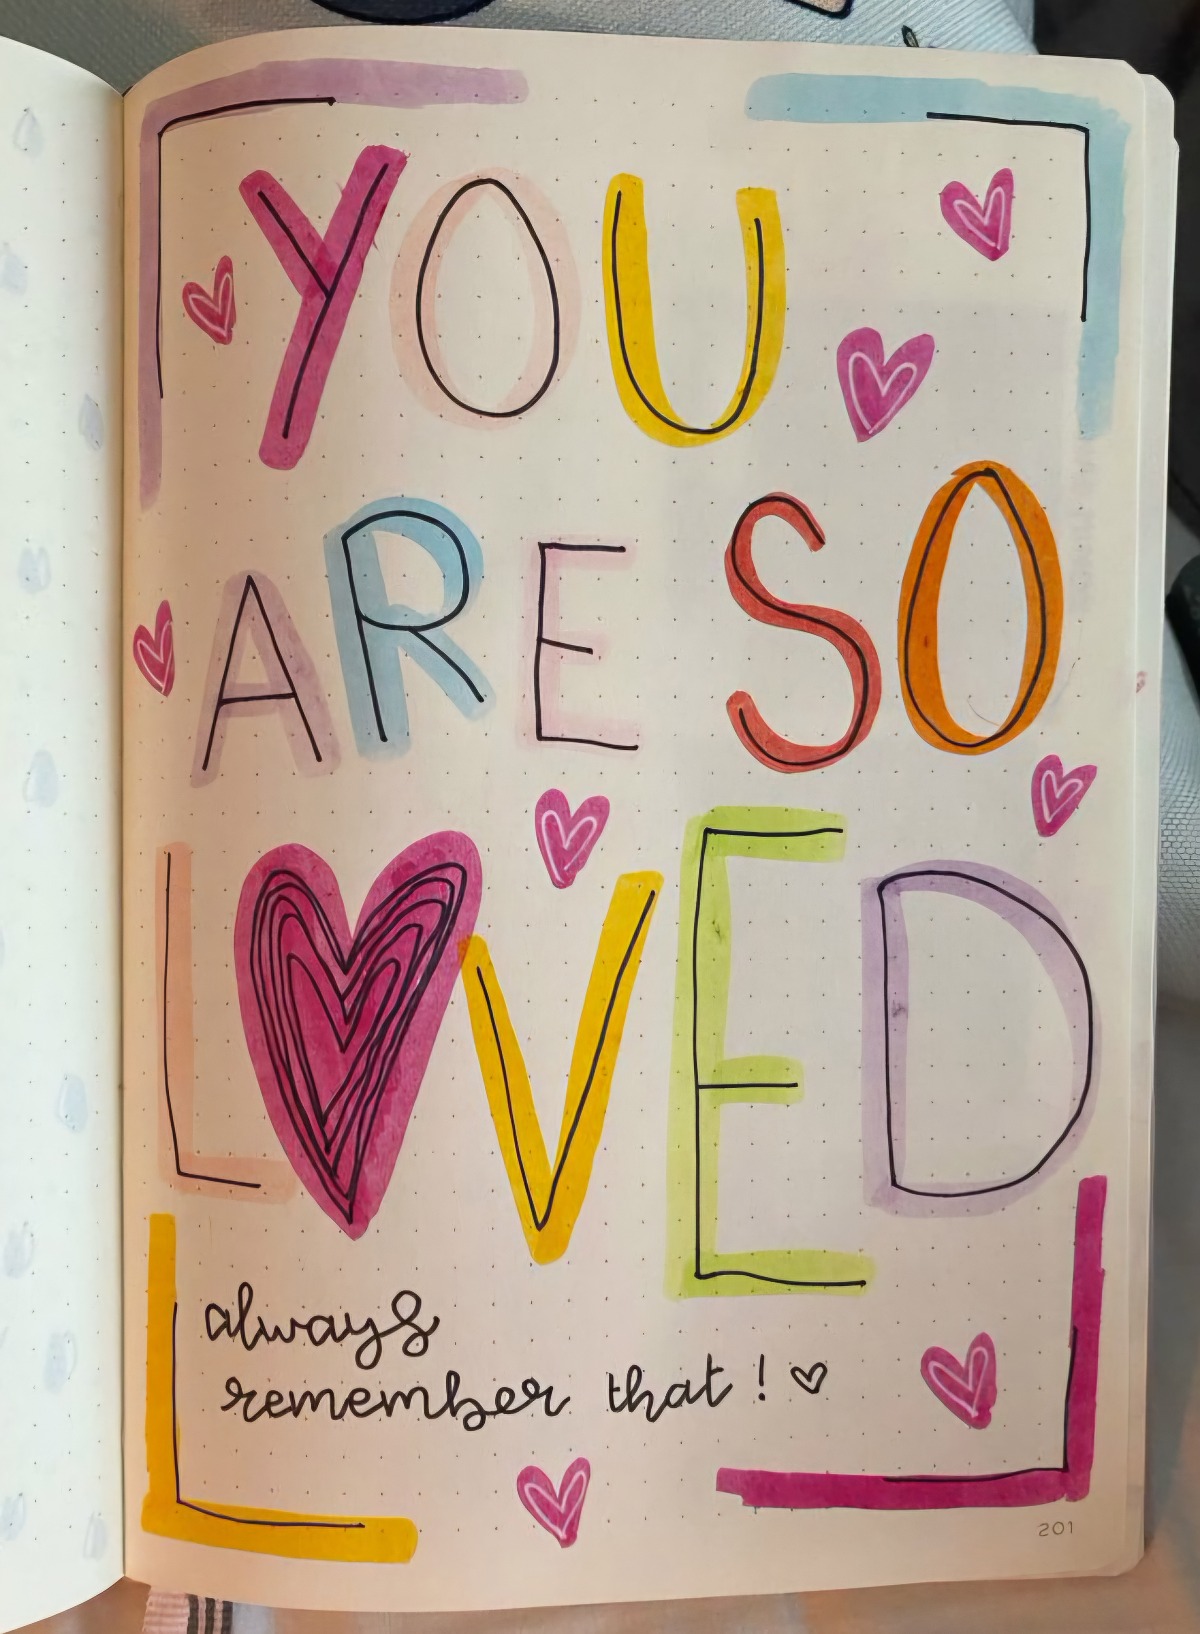 YOU
ARE SO
L♥VED
always
remember that! ♡
201